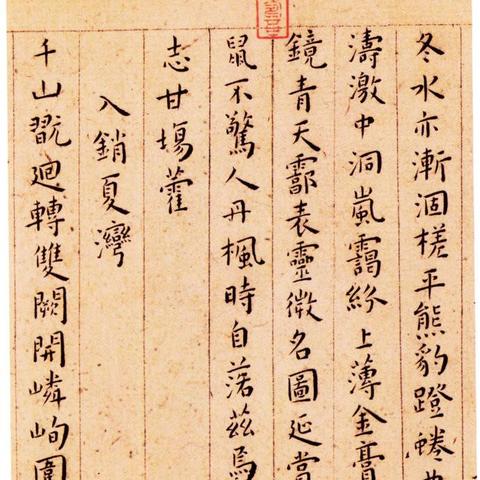 冬水亦漸涸槎平熊豹蹬蜷
濤激中洞嵐靄紛上薄金膏
鏡青天酃表靈微名圖延當
鼠不驚人丹楓時自落茲焉
志甘場藿
入銷夏灣
千山翫迴轉雙闕開嶙峋圍